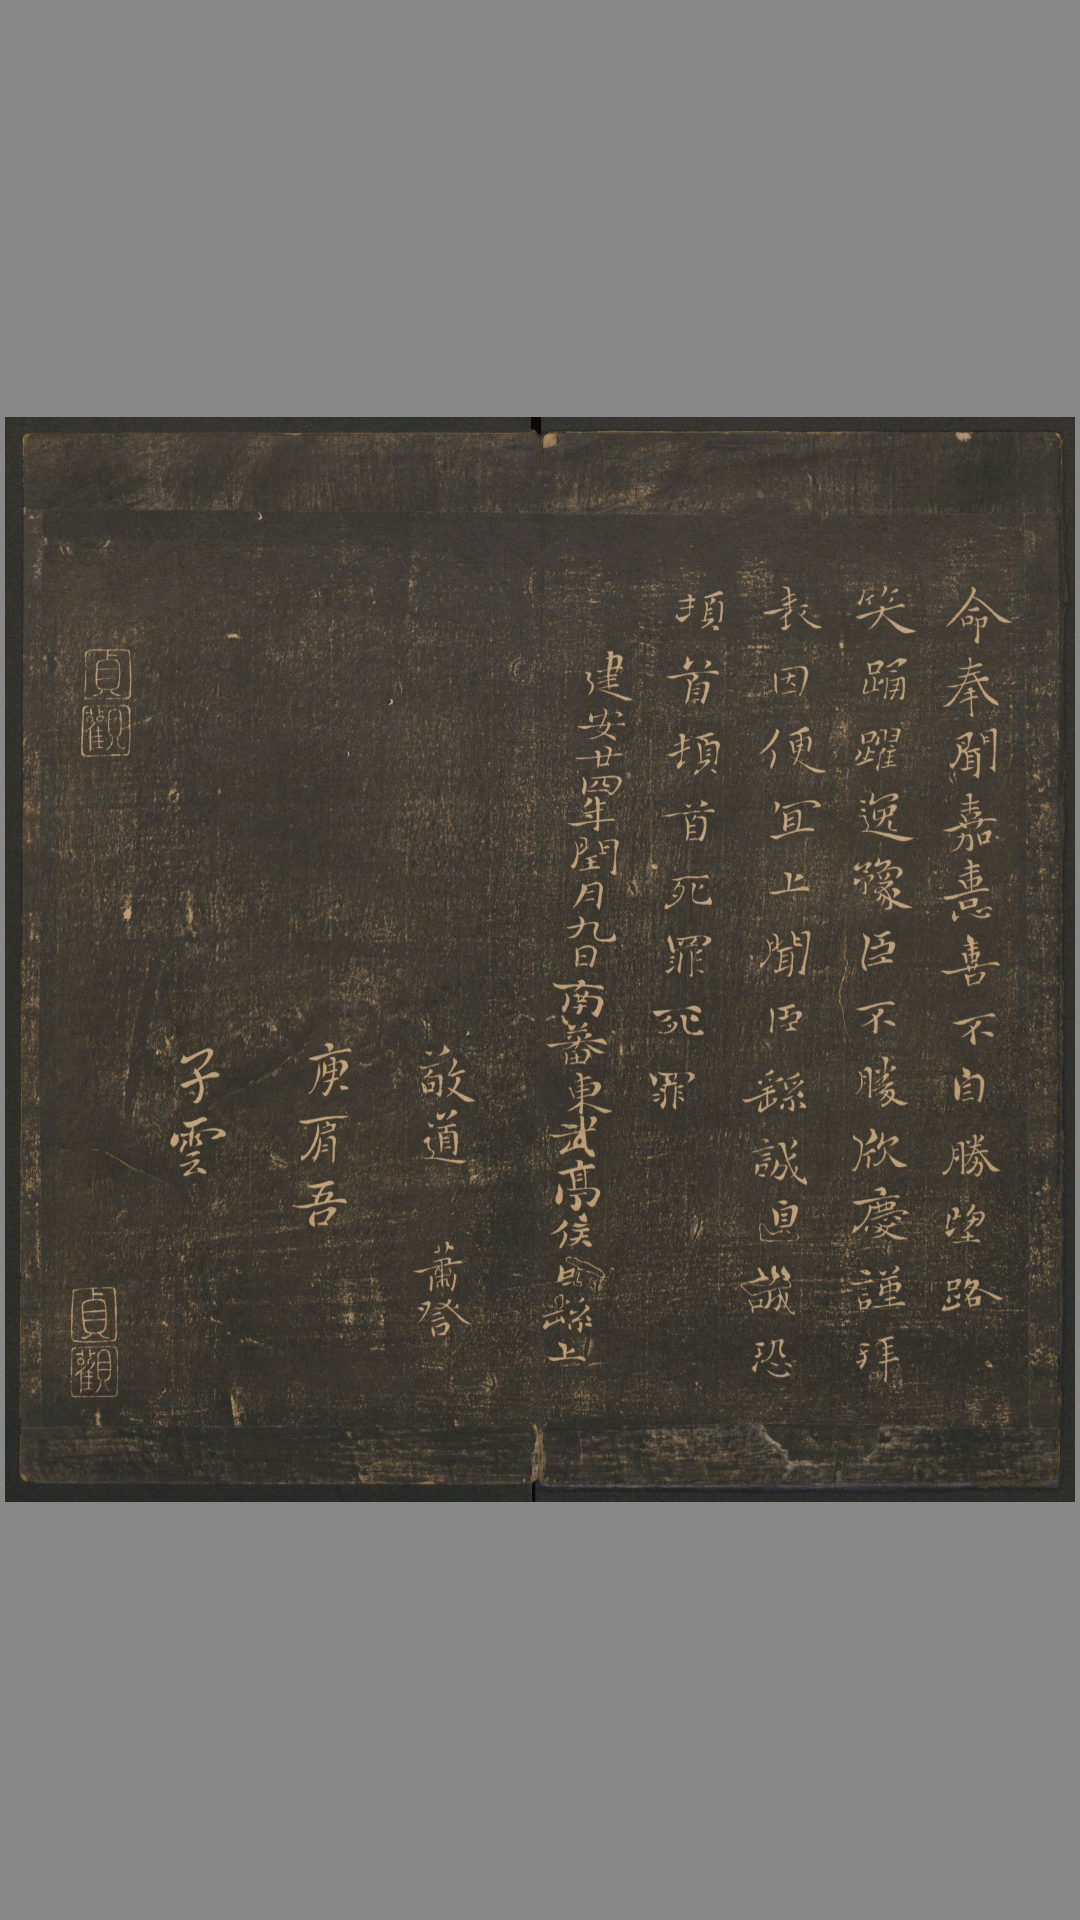 命奉聞嘉憙喜不自勝望路
笑踊躍逸豫臣不勝欣慶謹拜
表因便宜上聞臣繇誠惶誠恐
頓首頓首死罪死罪
建安廿四年閏月九日南蕃東武亭侯臣繇上
敬道 蕭詧
庾肩吾
子雲
貞觀
貞觀